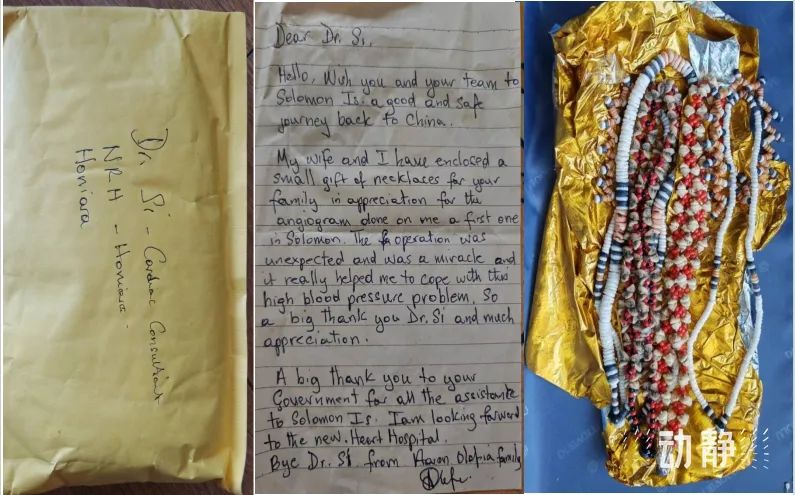 Dr. Si - Cardiac Consultant
NRH - Honiara -
Honiara
Dear Dr. Si,
Hello, Wish you and your team to
Solomon Is. a good and safe
journey back to China.
My wife and I have enclosed a
small gift of necklaces for your
family in appreciation for the
angiogram done on me a first one
in Solomon. The operation was
unexpected and was a miracle and
it really helped me to cope with this
high blood pressure problem. So
a big thank you Dr. Si and much
appreciation.
A big thank you to your
Government for all the assistance
to Solomon Is. I am looking forward
to the new Heart Hospital.
Bye Dr. Si from Aaron Olofia family
动静